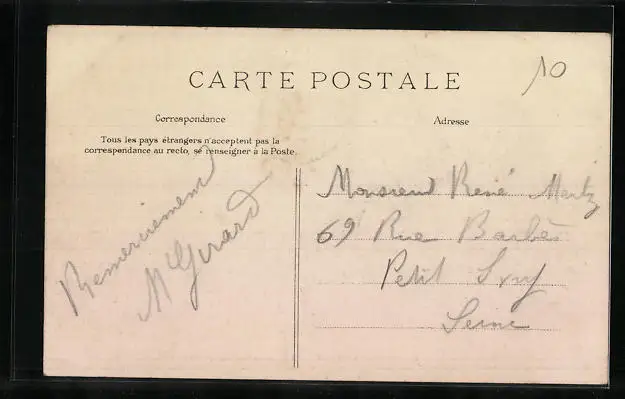 CARTE POSTALE
10
Correspondance
Adresse
Tous les pays étrangers n'acceptent pas la
correspondance au recto, se renseigner à la Poste.
Remerciement
M Girard
Monsieur René
69 Rue Barbès
Petit Ivry
Seine